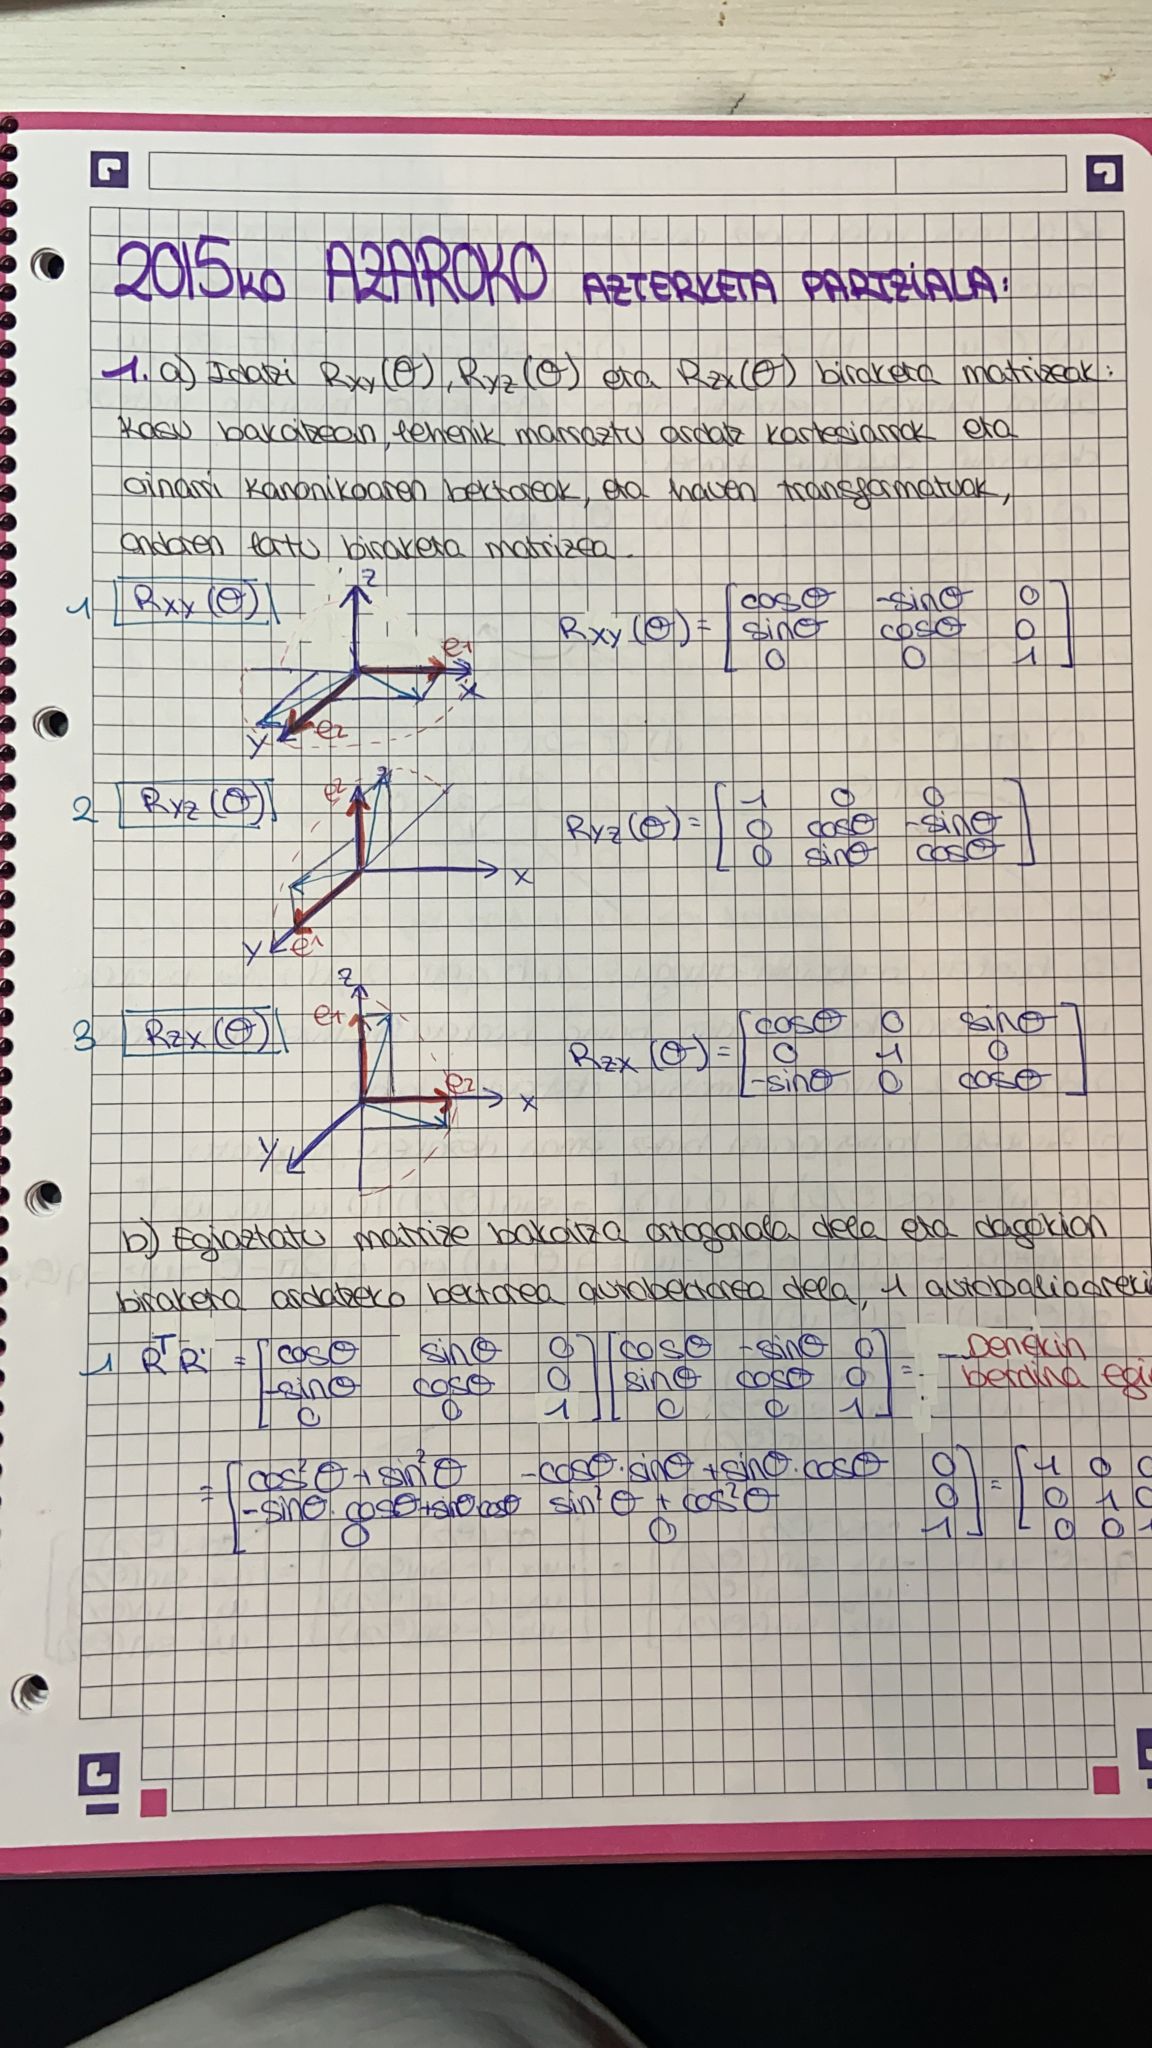 2015ko AZAROKO AZTERKETA PARTZIALA:
1. a) Idatzi Rxy(θ), Ryz(θ) eta Rzx(θ) biraketa matrizeak:
Kasu bakoitzean, lehenik marraztu ardatz kartesiarrak eta
oinarri kanonikoaren bektoreak, eta hauen transformatuak,
ondoren lortu biraketa matrizea.
1 Rxy(θ)
z
e1
x
y
e2
Rxy(θ) = [cosθ -sinθ 0
sinθ cosθ 0
0 0 1]
2 Ryz(θ)
e2
z
x
y
e1
Ryz(θ) = [1 0 0
0 cosθ -sinθ
0 sinθ cosθ]
3 Rzx(θ)
z
e1
e2
x
y
Rzx(θ) = [cosθ 0 sinθ
0 1 0
-sinθ 0 cosθ]
b) Egiaztatu matrize bakoitza ortogonala dela eta dagokion
biraketa ardatzeko bektorea autobektorea dela, 1 autobalioareki
1 RᵀR = [cosθ sinθ 0
-sinθ cosθ 0
0 0 1] [cosθ -sinθ 0
sinθ cosθ 0
0 0 1] =
Denekin
berdina egi
= [cos²θ + sin²θ -cosθ·sinθ + sinθ·cosθ 0
-sinθ·cosθ + sinθ cosθ sin²θ + cos²θ 0
0 0 1] = [1 0 0
0 1 0
0 0 1